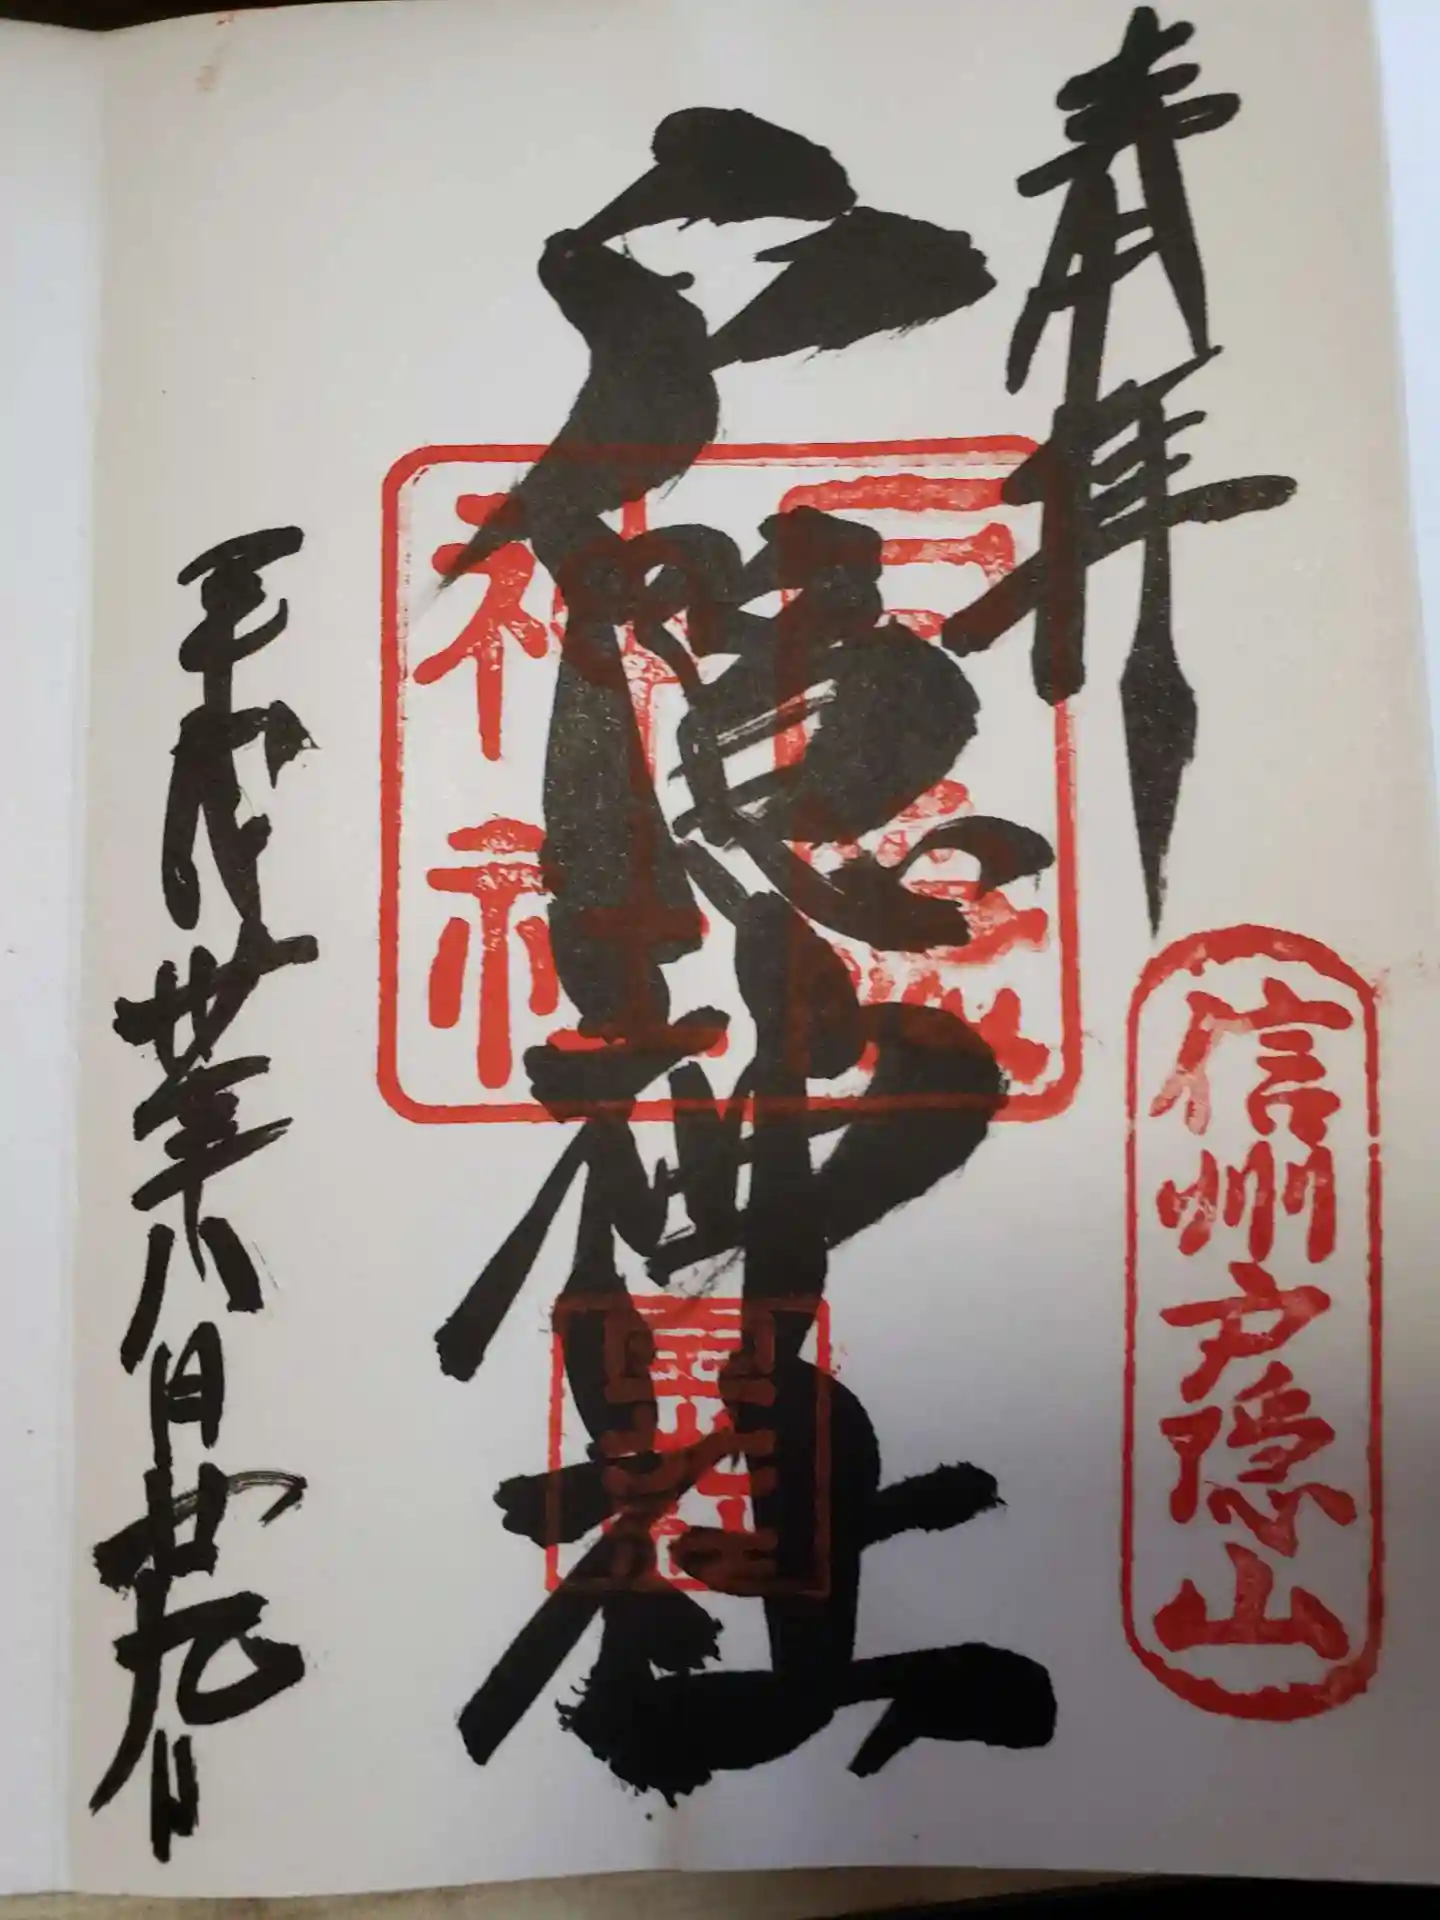 奉拝
信州戸隠山
戸隠神社
戸隠
神社
平成廿年八月廿九日